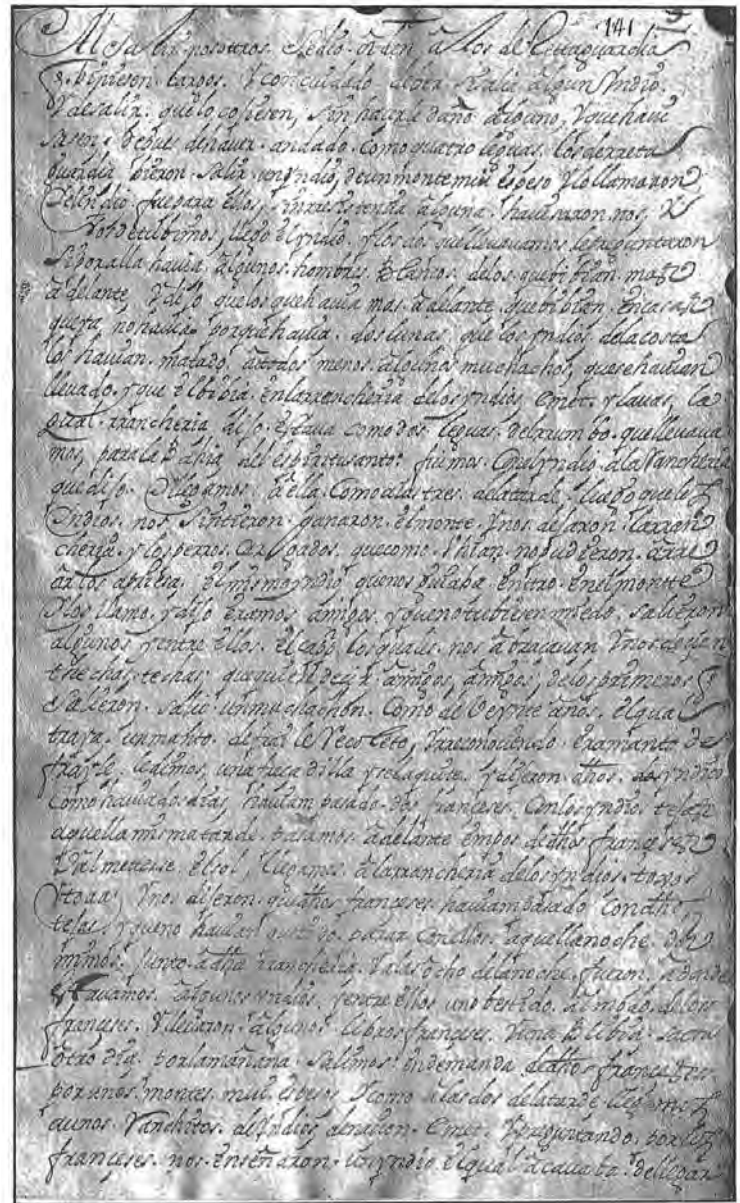 141
Al salir nosotros. Se dio. orden. a los de la rretaguardia
q. biniesen. largos. Y con cuidado de ber. si salia algun Yndio.
Y de salir. que lo cojiesen, sin hacerle daño alguno, Y que havi
sasen, despues de haver. andado. como quatro leguas. los de rreta
guardia bieron. salir. un yndio, de un monte mui espeso Y lo llamaron
el Yndio. fue para ellos, sin rresistencia alguna. havisaron nos, Y
nos detubimos, llego el yndio. Y los dos que llevavamos, le preguntaron
si por alla havia. algunos. hombres. Blancos. de los que bibian. mas
adelante, Y dijo que los que havia mas. adelante. que bibian. en casas
que ya, no havia. porque havia. dos lunas, que los yndios de la costa
los havian. matado, a todos menos. algunos muchachos, que se havian
llevado. Y que el bibia, en la rrancheria de los yndios, Emet. y lavas, la
qual. rrancheria dijo. estava como dos leguas. del rrumbo. que llevava
mos, para la Bahia del espiritu santo. fuimos. con el yndio. a la rancheria
que dijo. llegamos, a ella. como a las tres. de la tarde, luego que los
Yndios. nos sintieron. ganaron. el monte. Y nos dejaron. la rran
cheria. y los perros. cargados. que como. no pudieron. arre
arlos apriesa, el mismo yndio. que nos guiaba. entro. en el monte
Y los llamo. Y dijo. eramos. amigos. Y que no tubiesen miedo. salieron
algunos y entre ellos. el cabo, los quales. nos abraçavan Y nos decian
thechas, techas; que quiere decir. amigos, amigos; de los primeros q.
salieron. salio un muchachon. como de veynte años. el qual
traya. un manto. de fraile Recoleto, Y rreconociendo. era manto de
frayle, le dimos, una fracadilla y se la quite. Y dijeron. dhos. yndios
como havia dos dias, havian pasado. dos franceses. con los yndios tejas
aquella misma tarde. pasamos. adelante en pos de dhos franceses
Y al meterse. el sol, llegamos. a la rrancheria de los yndios. toxos
Y toaa; Y nos dijeron. que dhos franceses havian pasado con dhos
tejas, y que no havian querido. parar con ellos. aquella noche. dor
mimos. junto. a dha rrancheria. Y a las ocho de la noche. fueron. a donde
estavamos. algunos yndios, y entre ellos uno bestido. al modo. de los
franceses. Y llevaron. algunos libros franceses. Y una Biblia. sacra
otro dia. por la mañana. salimos en demanda de dhos franceses
por unos. montes. mui espesos Y como a las dos de la tarde. llegamos
a unos. Ranchitos. de Yndios de nacion. Emet. Y preguntando. por los
franceses. nos enseñaron. un yndio, el qual acavaba. de llegar